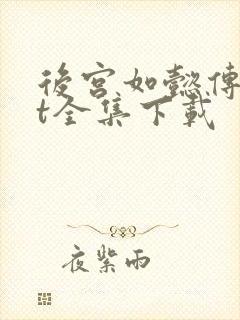 後宮如懿傳
t全集下載
夜紫雨